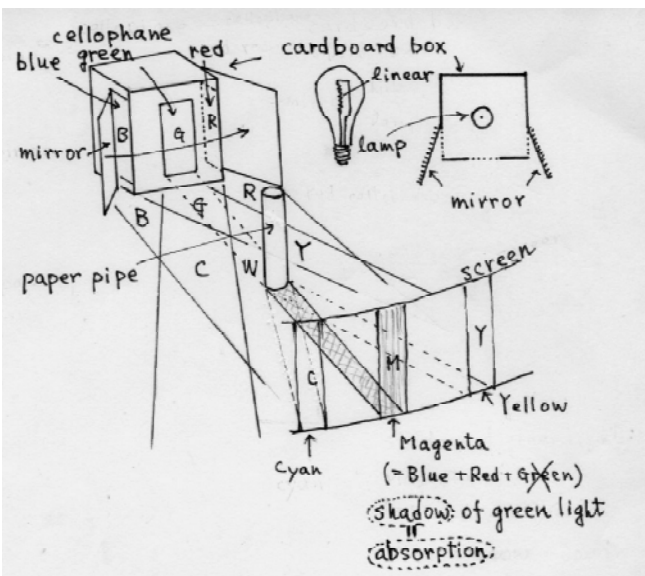 cellophane
blue green red
cardboard box
linear
lamp
B G R
mirror
mirror
B G R
Y
C W
paper pipe
screen
C M Y
Yellow
Cyan
Magenta
(=Blue+Red+Green)
shadow of green light
=
absorption